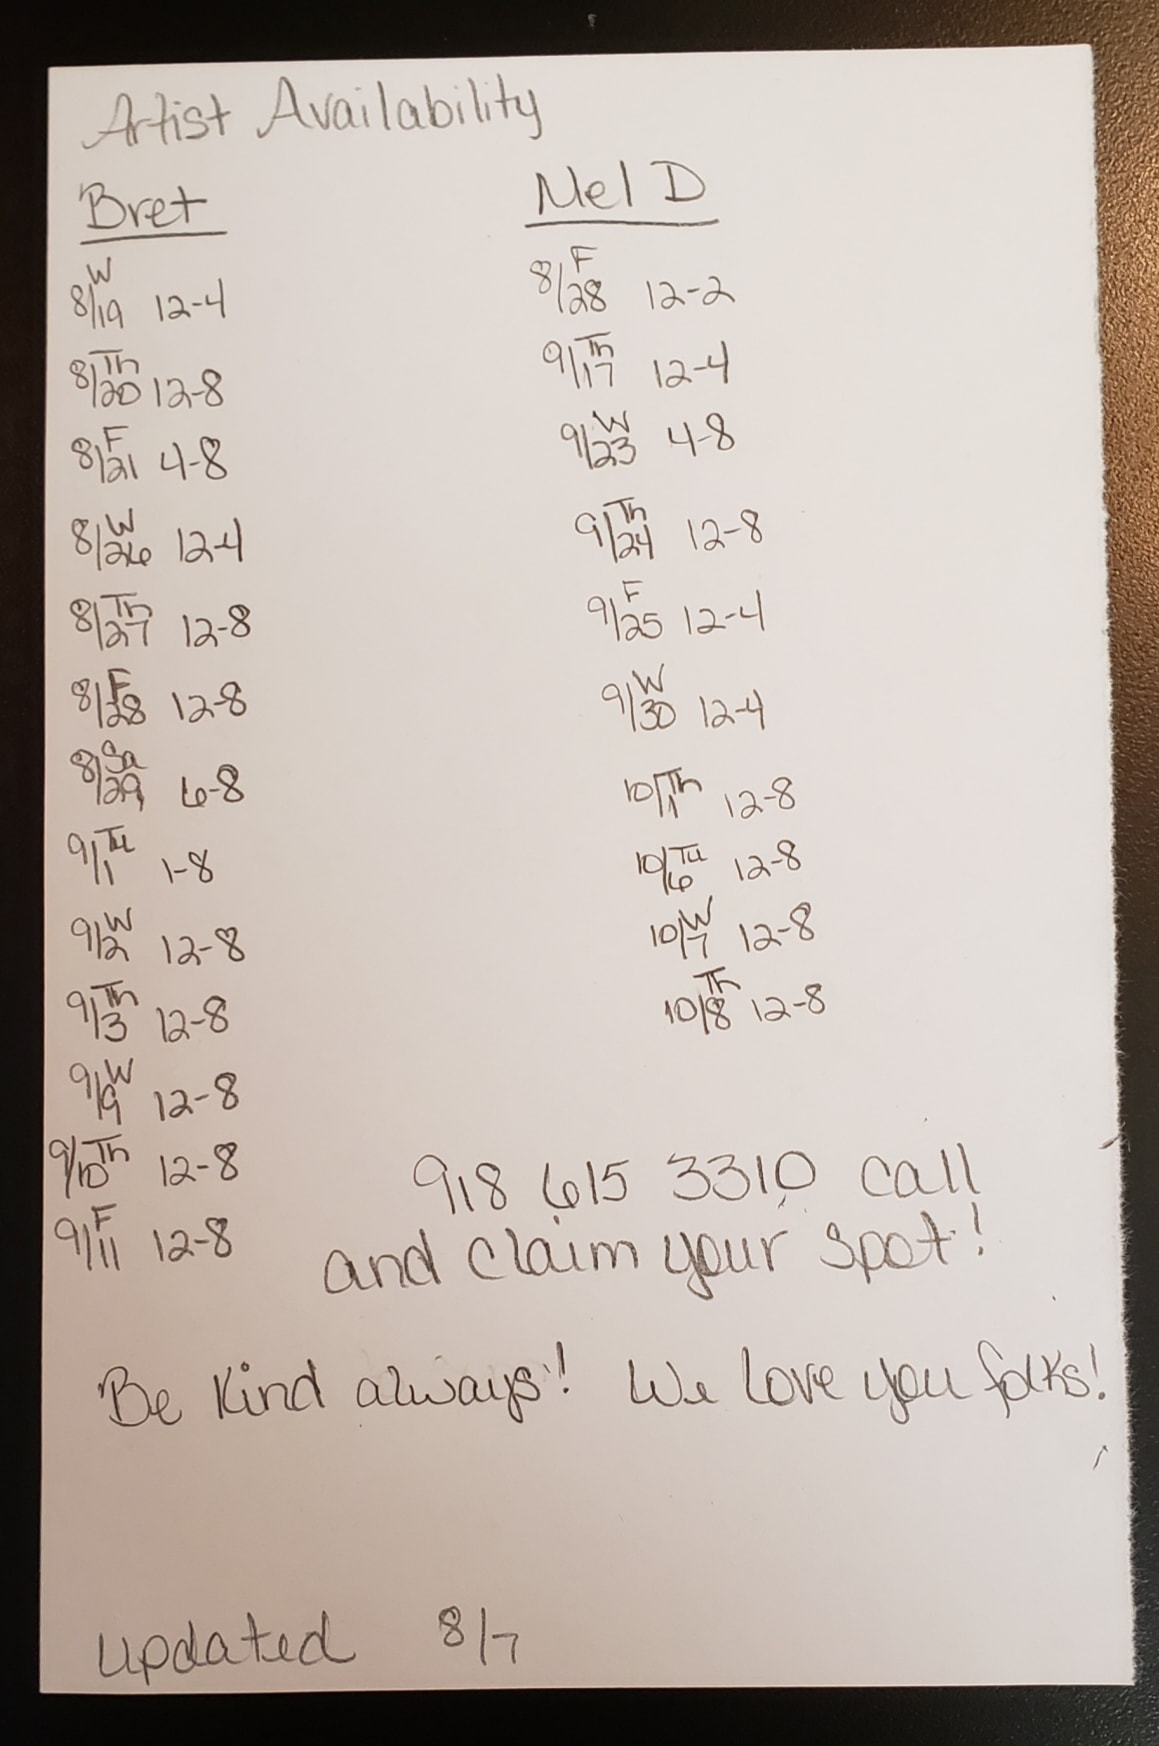 Artist Availability
Bret
W
8/19 12-4
Th
8/20 12-8
F
8/21 4-8
W
8/26 12-4
Th
8/27 12-8
F
8/28 12-8
Sa
8/29 6-8
Tu
9/1 1-8
W
9/2 12-8
Th
9/3 12-8
W
9/9 12-8
Th
9/10 12-8
F
9/11 12-8
Mel D
F
8/28 12-2
Th
9/17 12-4
W
9/23 4-8
Th
9/24 12-8
F
9/25 12-4
W
9/30 12-4
Th
10/1 12-8
Tu
10/6 12-8
W
10/7 12-8
Th
10/8 12-8
918 615 3310 call
and claim your spot!
Be Kind always! We love you folks!
updated 8/7